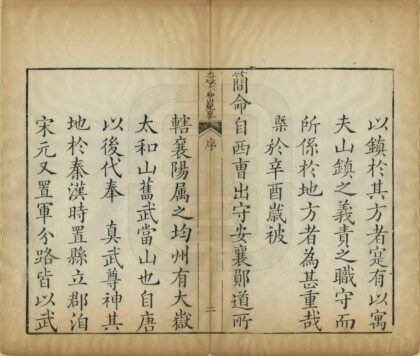 以鎮於其方者寔有以寓
夫山鎮之義責之職守而
所係於地方者為甚重哉
槩於辛酉歲被
簡命自西曹出守安襄鄖道所
大嶽太和山紀畧
序
二
轄襄陽屬之均州有大嶽
太和山舊武當山也自唐
以後代奉 真武尊神其
地於秦漢時置縣立郡洎
宋元又置軍分路皆以武